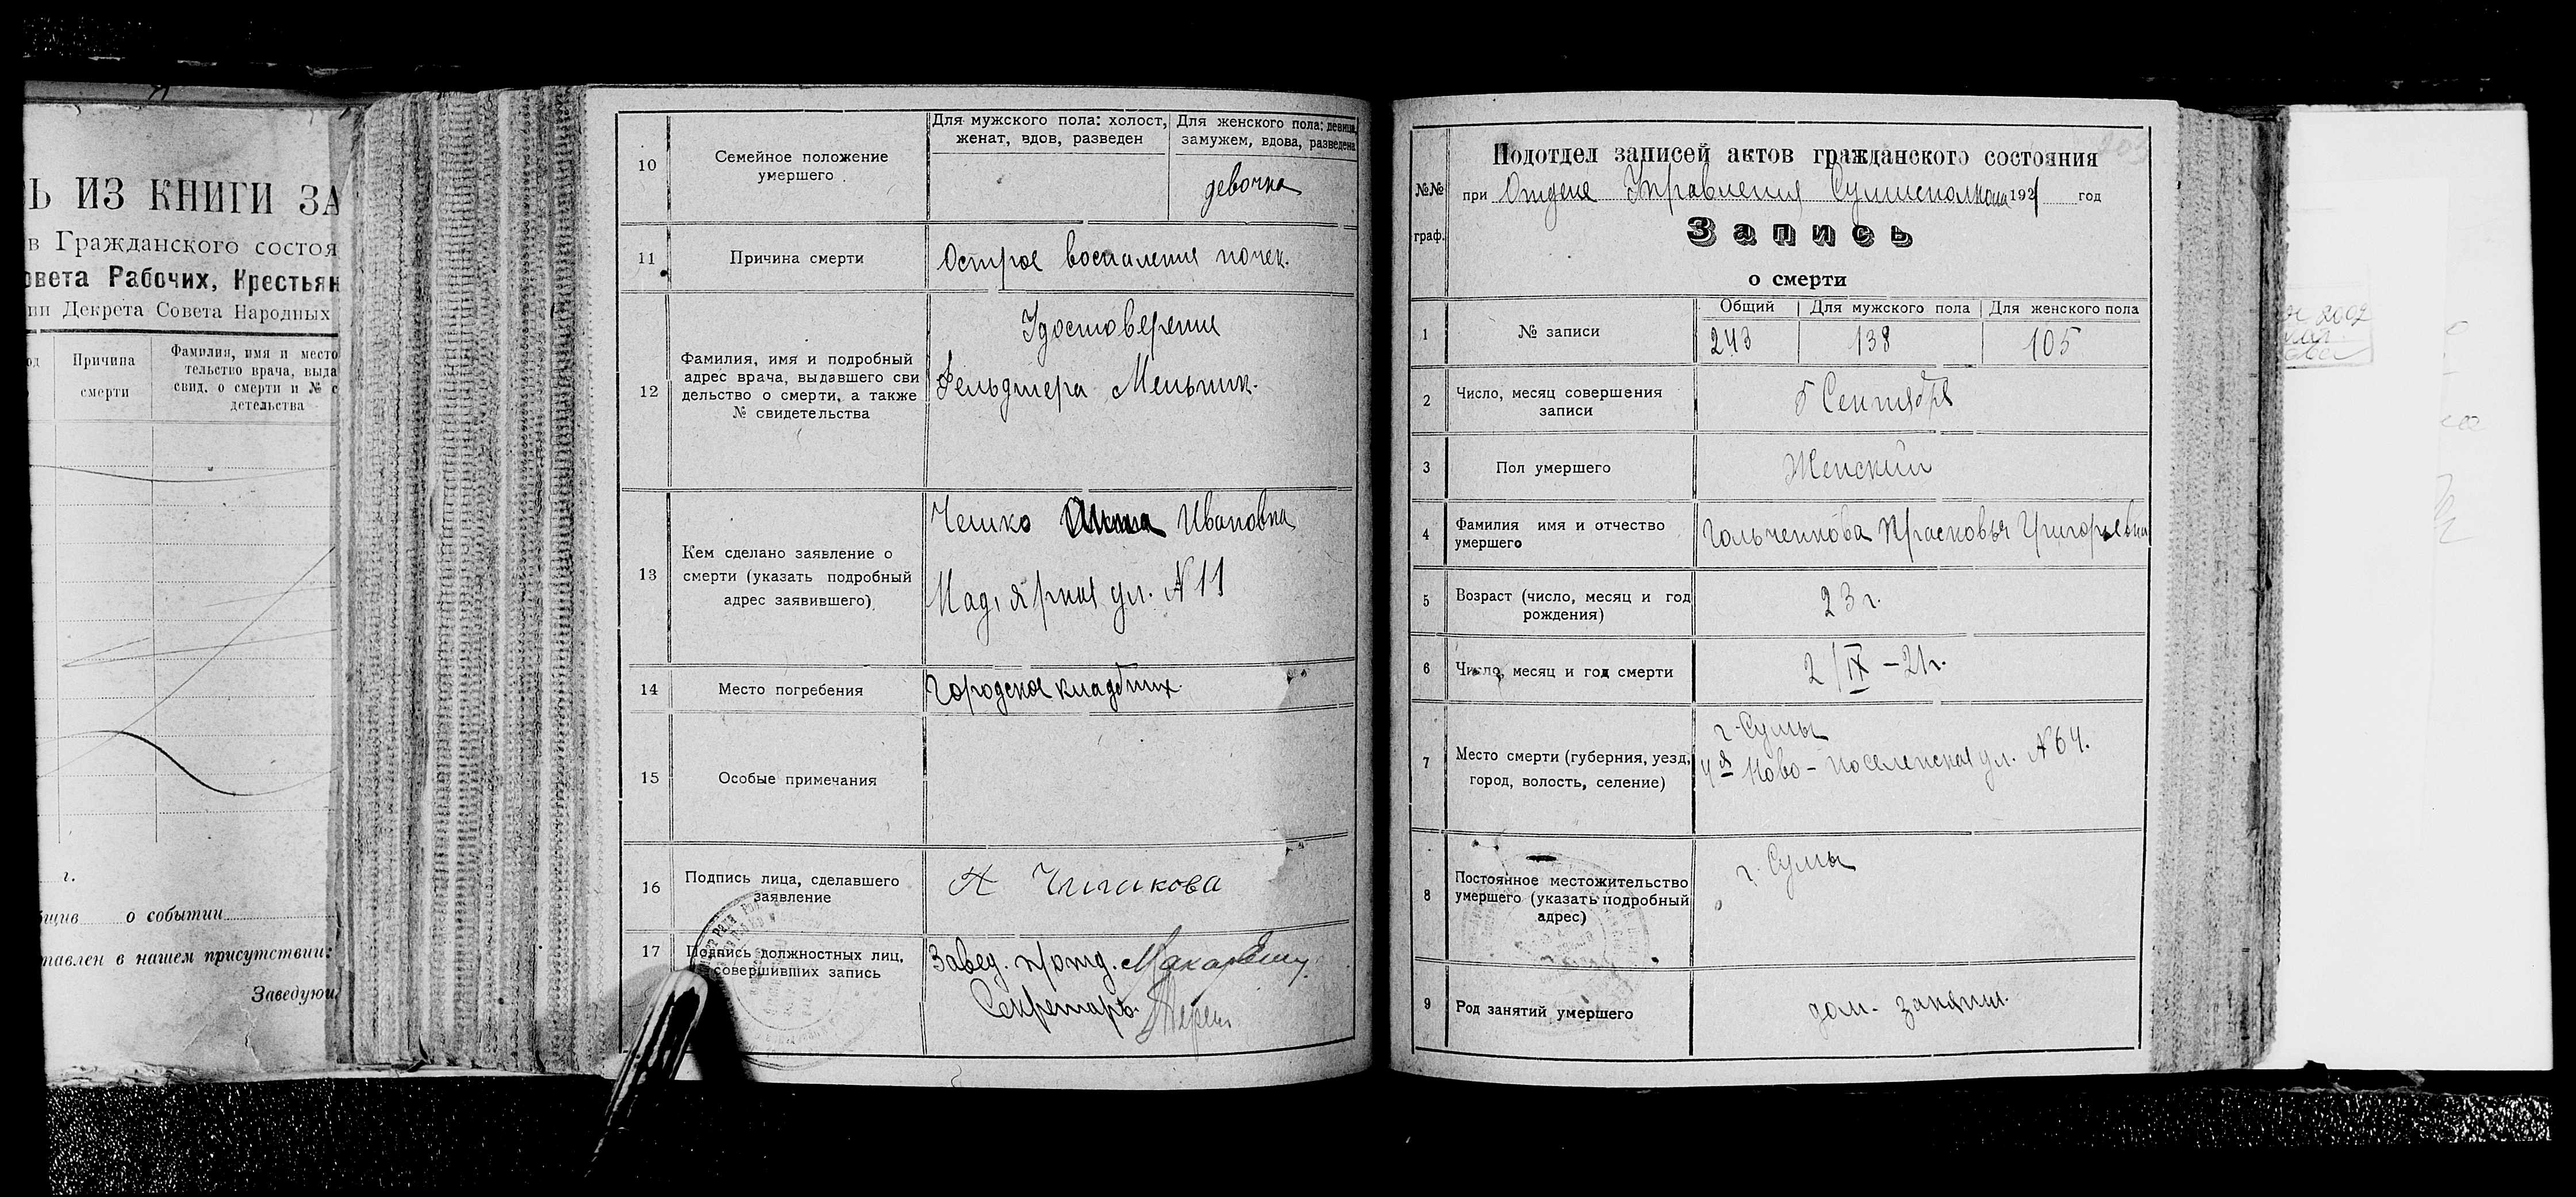 Ь ИЗ КНИГИ ЗА
в Гражданского состоя
овета Рабочих, Крестьян
ии Декрета Совета Народных
од
Причина
смерти
Фамилия, имя и место
тельство врача, выда
свид. о смерти и № с
детельства
г.
бщив о событии
тавлен в нашем присутствии:
Заведующ
10
Семейное положение
умершего
Для мужского пола: холост,
женат, вдов, разведен
Для женского пола: девица,
замужем, вдова, разведена
девочка
11
Причина смерти
Острое воспаления почек.
12
Фамилия, имя и подробный
адрес врача, выдавшего сви
дельство о смерти, а также
№ свидетельства
Удостоверение
Фельдшера Мельник.
13
Кем сделано заявление о
смерти (указать подробный
адрес заявившего)
Чешко Анна Ивановна
ул. № 11
14
Место погребения
Городское кладбище.
15
Особые примечания
16
Подпись лица, сделавшего
заявление
А
17
Подпись должностных лиц,
совершивших запись
Завед. п/отд.
Секретарь
№№
граф.
Подотдел записей актов гражданского состояния
при Отделе Управления Сумисполкома 1921 год
Запись
о смерти
1
№ записи
Общий
Для мужского пола
Для женского пола
243
138
105
2
Число, месяц совершения
записи
5 Сентября
3
Пол умершего
Женский
4
Фамилия имя и отчество
умершего
Гольченкова Прасковья Григорьевна
5
Возраст (число, месяц и год
рождения)
23 г.
6
Число, месяц и год смерти
2/IX – 21 г.
7
Место смерти (губерния, уезд,
город, волость, селение)
г. Сумы
4я Ново-поселенская ул. № 64.
8
Постоянное местожительство
умершего (указать подробный
адрес)
г. Сумы
9
Род занятий умершего
дом. занятия.
2002